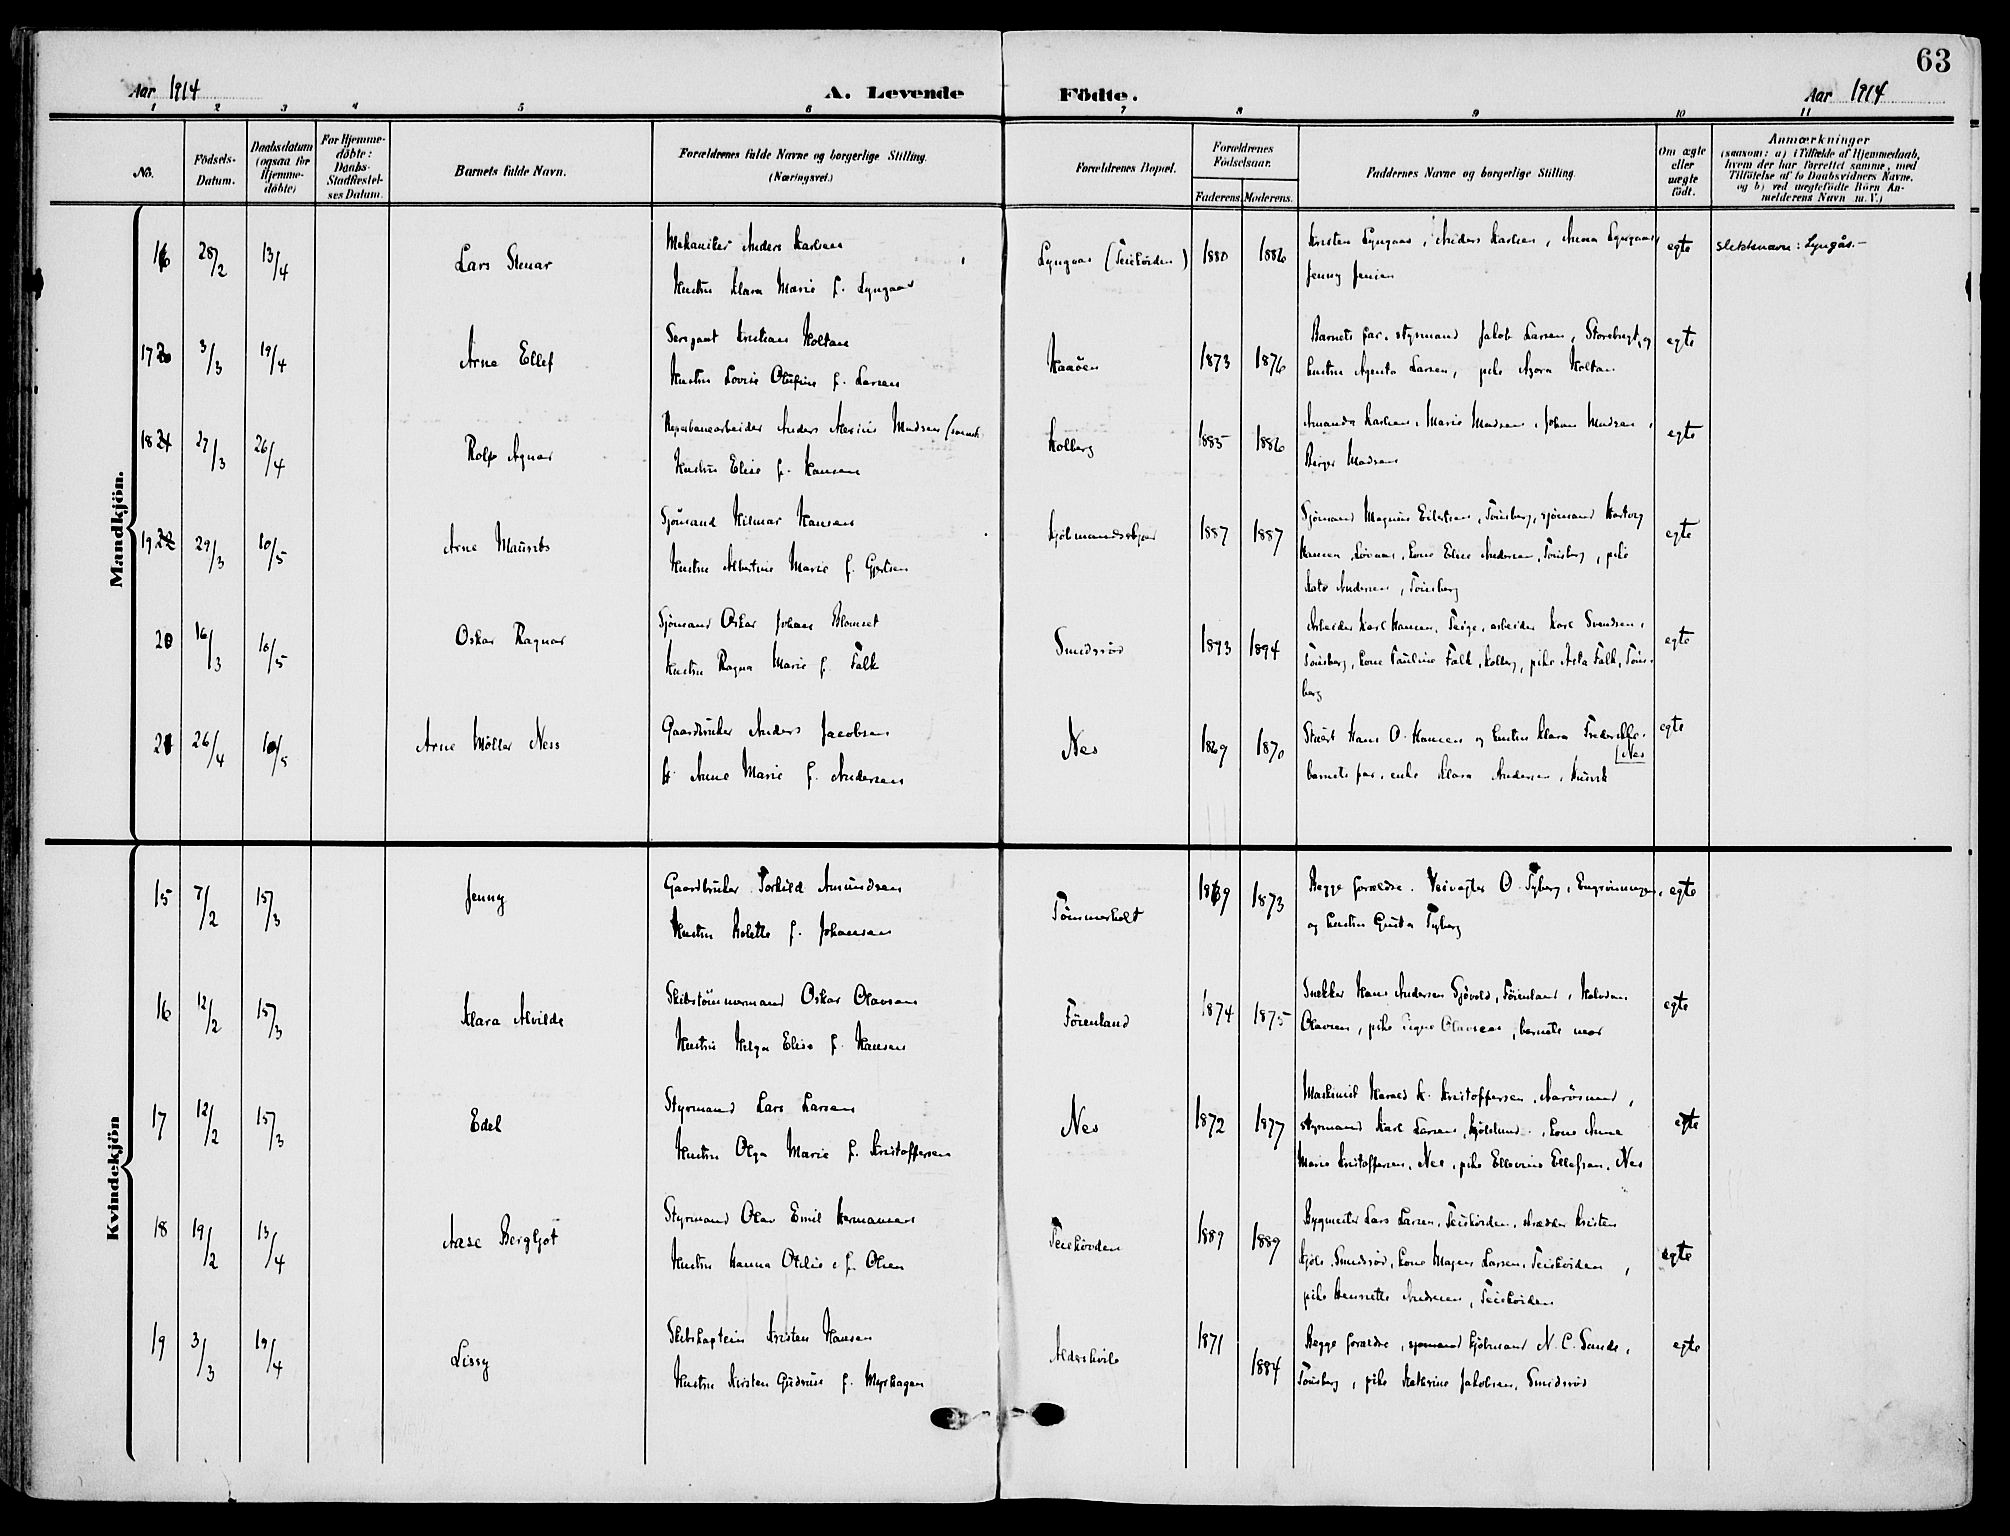 63
Aar 1914
A. Levende Födte.
Aar 1914
1 2 3 4 5 6 7 8 9 10 11
No.
Födsels-
Datum.
Daabsdatum
(ogsaa for
Hjemme-
döbte)
For Hjemme-
döbte:
Daabs-
Stadfæstel-
ses Datum.
Barnets fulde Navn.
Forældrenes fulde Navne og borgerlige Stilling.
(Næringsvei.)
Forældrenes Bopæl.
Forældrenes
Födselsaar.
Faderens. Moderens.
Faddernes Navne og borgerlige Stilling.
Om ægte
eller
uægte
födt.
Anmærkninger
(saasom: a) i Tilfælde af Hjemmedaab,
hvem der har forrettet samme, med
Tilföielse af to Daabsvidners Navne,
og b) ved uægtefödte Börn An-
melderens Navn m. V.)
Mandkjön.
16 28/2 13/4 Lars Steinar
Mekaniker Anders Karlsen
Hustru Klara Marie f. Lyngaas
Lyngaas (Teiehöiden) 1880 1886
Kristen Lyngaas, Anders Karlsen, Anna Lyngaas,
Jenny Jensen
egte
slektsnavn: Lyngås.-
17 3/3 19/4 Arne Ellef
Sersjant Kristian Holtan
Hustru Lovise Olufine f. Larsen
Kaaöen 1873 1876
Barnets far, styrmand Jakob Larsen, og
hustru Agenta Larsen, pike Agora Holtan
egte
18 27/3 26/4 Rolf Agnar
Reperbanearbeider Anders Marius Madsen
Hustru Elise f. Hansen
Kolberg 1885 1886
Amanda Karlsen, Marie Madsen, Johan Madsen,
Birger Madsen
egte
19 29/3 10/5 Arne Maurits
Sjömand Hilmar Hansen
Hustru Albertine Marie f. Gjertsen
Kjöbmandskjær 1887 1887
Sjömand Magnus Eilertsen, Tönsberg, sjömand Hartvig
Hansen, kone Elise Andersen, Tönsberg, pike
Andersen, Tönsberg
egte
20 16/3 10/5 Oskar Ragnar
Sjömand Oskar Johan Blomset
Hustru Ragna Marie f. Falk
Smidsröd 1893 1894
Arbeider Karl Hansen, Teige, arbeider Karl Svendsen,
Tönsberg, kone Pauline Falk, Kolberg, pike Asta Falk, Töns-
berg
egte
21 26/4 10/5 Arne Möller Ness
Gaardbruker Anders Jacobsen
H. Anne Marie f. Andersen
Nes 1869 1870
Stuert Hans O. Hansen og hustru Klara Fredrikke,
Nes
barnets far, enke Klara Andersen, Husvik
egte
Kvindekjön
15 7/2 15/3 Jenny
Gaardbruker Torkild Amundsen
Hustru Kolette f. Johansen
Tömmerholt 1869 1873
Begge forældre. Veivogter O. Tyberg,
og hustru Gusta Tyberg
egte
16 12/2 15/3 Klara Alvilde
Skibstömmermand Oskar Olavsen
Hustru Helga Elise f. Hansen
Föienland 1874 1875
Snekker Hans Andersen Sjövold, Föienland, Halvdan
Olavsen, pike Signe Olavsen, barnets mor
egte
17 12/2 15/3 Edel
Styrmand Lars Larsen
Hustru Olga Marie f. Kristoffersen
Nes 1872 1877
Maskinist Harald H. Kristoffersen, Aarösund,
styrmand Karl Larsen, kone Anne
Marie Kristoffersen, Nes, pike Ellevine Ellefsen, Nes
egte
18 19/2 13/4 Aase Bergljot
Styrmand Olav Emil Hermansen
Hustru Hanna Otilie f. Olsen
Teiehöiden 1889 1889
Bygmester Lars Larsen, Teiehöiden, skrædder Kristen
Kjöle, Smidsröd, kone Magna Larsen, Teiehöiden,
pike Henriette Andersen, Teiehöiden
egte
19 3/3 19/4 Lissy
Skibskaptein Kristen Hansen
Hustru Kirsten Gudrun f. Myrhagen
Aldershvile 1871 1884
Begge forældre, kjöbmand N. C. Sunde,
Tönsberg, pike Kathrine Jakobsen, Smidsröd
egte